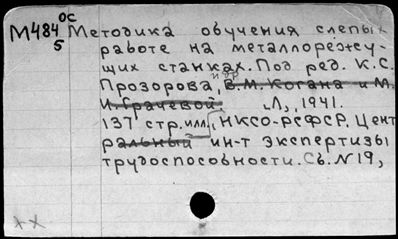 М484 ос Методика обучения слепых
5 работе на металлорежу-
щих станках. Под ред. К.С.
Прозорова, и др. В.М. Когана и М.
И. Грачевой. Л, 1941.
137 стр. илл., НКСО-РСФСР, Цент
ральный ин-т экспертизы
трудоспособности. Сб. N 19,
хх